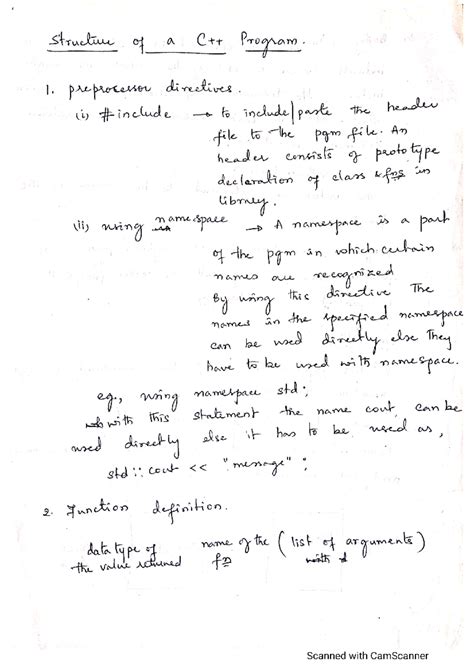 Structure of a C++ Program.
1. preprocessor directives.
(i) #include → to include/paste the header
file to the pgm file. An
header consists of prototype
declaration of class & fns in
library.
(ii) using namespace → A namespace is a part
of the pgm in which certain
names are recognized
By using this directive The
names in the specified namespace
can be used directly else They
have to be used with namespace.
eg., using namespace std;
with this statement the name cout, can be
used directly else it has to be used as,
std :: cout << "message" ;
2. Function definition.
data type of name of the (list of arguments)
the value returned fn
Scanned with CamScanner